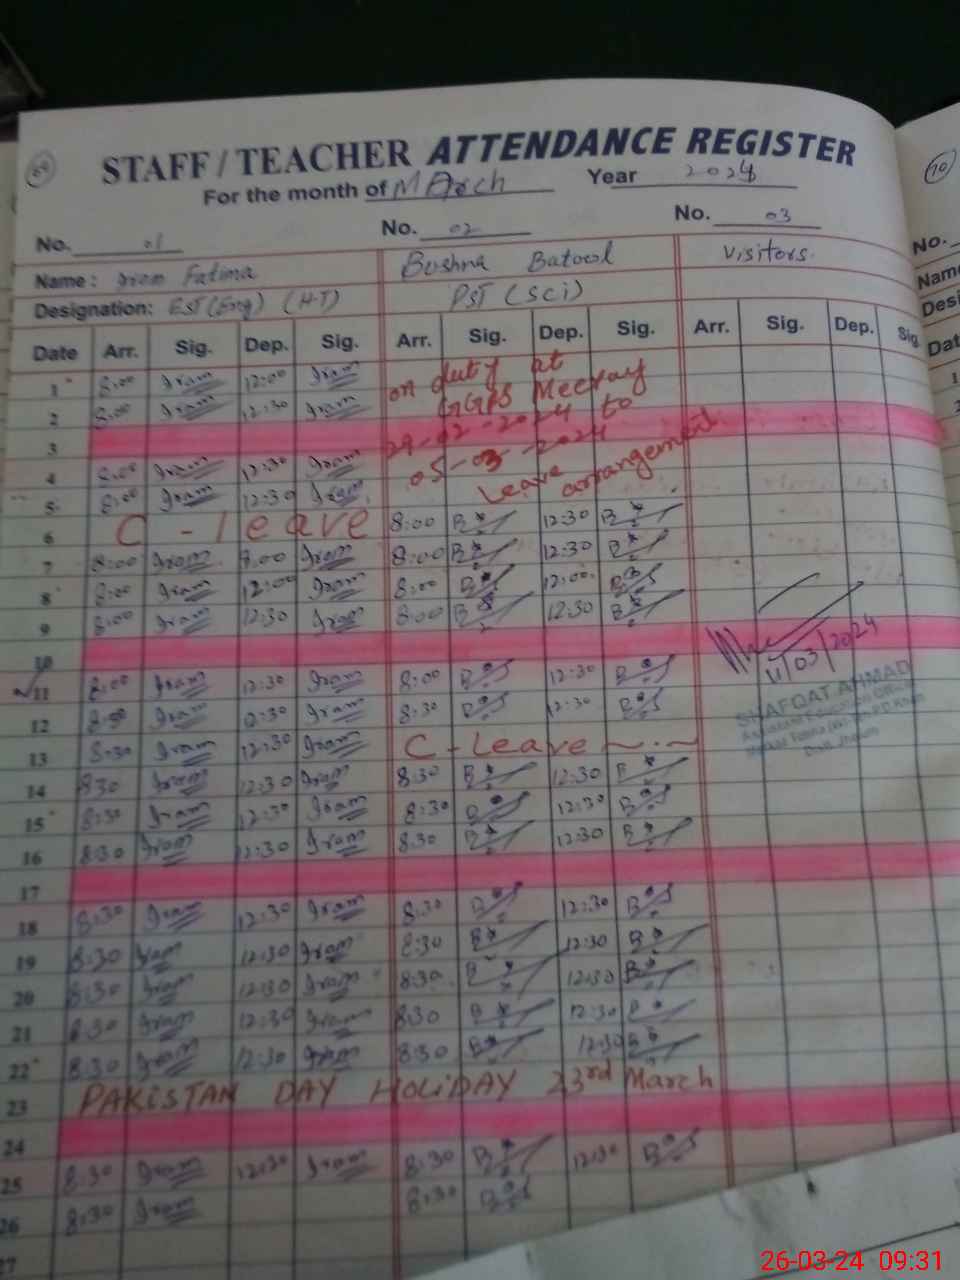 69
STAFF / TEACHER ATTENDANCE REGISTER
For the month of March Year 2024
No. 01 No. 02 No. 03
Name: Iram Fatima Bushra Batool Visitors.
Designation: EST (Eng) (H-T) PST (Sci)
Date Arr. Sig. Dep. Sig. Arr. Sig. Dep. Sig. Arr. Sig. Dep. Sig.
1 8:00 Iram 12:00 Iram on duty at
2 8:00 Iram 12:30 Iram GGPS
3 29-02-2024 to
4 8:00 Iram 12:30 Iram 05-03-2024
5 8:00 Iram 12:30 Iram Leave arrangement
6 C-leave 8:00 12:30
7 8:00 Iram Iram 8:00 12:30
8 8:00 Iram 12:00 Iram 8:00 12:00
9 8:00 Iram 12:30 Iram 8:00 12:30
10
11 8:00 Iram 12:30 Iram 8:00 12:30
11/03/2024
SHAFQAT AHMAD
12 Iram Iram 8:30 12:30
13 8:30 Iram 12:30 Iram C-Leave
14 8:30 Iram 12:30 Iram 8:30 12:30
15 8:30 Iram 12:30 Iram 8:30 12:30
16 8:30 Iram 12:30 Iram 8:30 12:30
17
18 8:30 Iram 12:30 Iram 8:30 12:30
19 8:30 Iram 12:30 Iram 8:30 12:30
20 8:30 Iram 12:30 Iram 8:30 12:30
21 8:30 Iram 12:30 Iram 8:30 12:30
22 8:30 Iram 12:30 Iram 8:30 12:30
23 PAKISTAN DAY HOLIDAY 23rd March
24
25 8:30 Iram 12:30 Iram 8:30 12:30
26 8:30 Iram 8:30
27
70
No.
Name
Desi
Dat
1
26-03-24 09:31